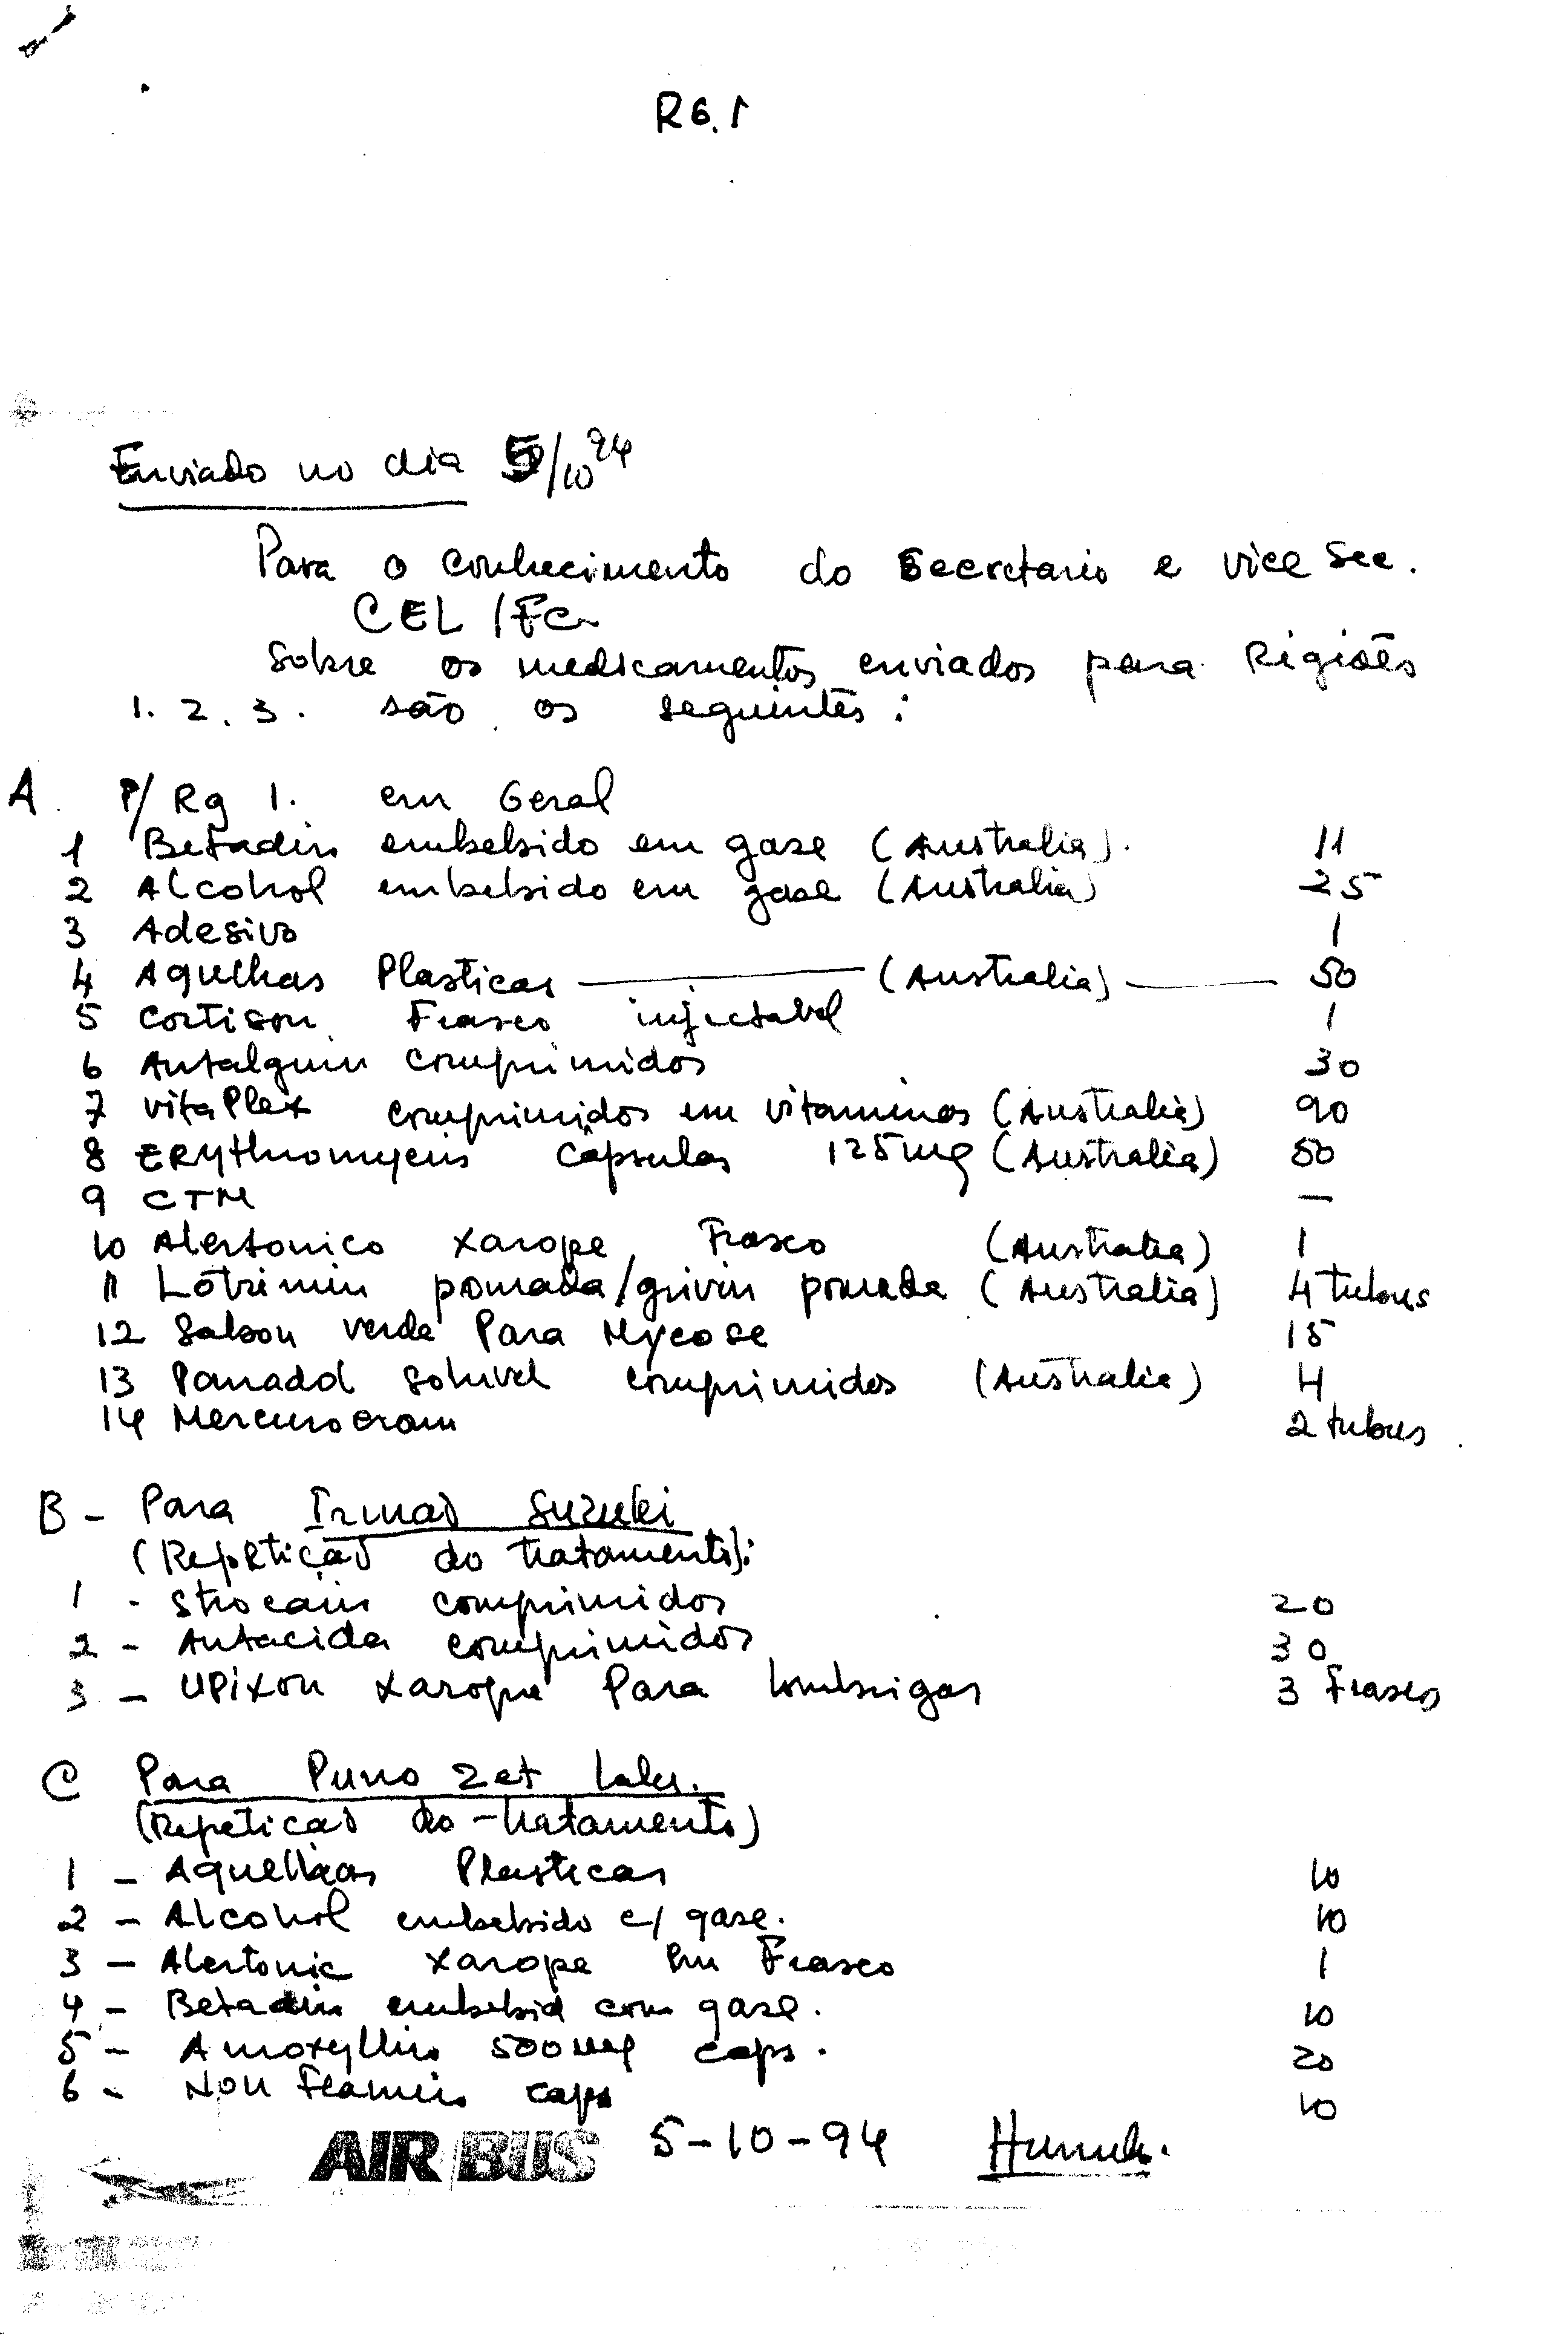 R6.1
Enviado no dia 5/10 94
Para o conhecimento do Secretario e vice Sec.
CEL /FC
Sobre os medicamentos enviados para Rigiões
1. 2. 3. são os seguintes:
A P/ Rg 1. em Geral
1 Betadin embebido em gase (Australia). 11
2 Alcohol embebido em gase (Australia) 25
3 Adesivo 1
4 Agulhas Plasticas (Australia) 50
5 Cortison Frasco injectavel 1
6 Antalguin comprimidos 30
7 vitaPlex comprimidos em vitaminas (Australia) 90
8 ERythromycin capsulas 125mg (Australia) 50
9 CTM —
10 Alertonico xarope, Frasco (Australia) 1
11 Lotrimin pomada/grivin pomada (Australia) 4 tubous
12 Sabon verde Para Mycose 15
13 Panadol soluvel comprimidos (Australia) 4
14 Mercurocram 2 tubous
B - Para Irmao Suzuki
(Repetição do tratamento):
1 - Strocain comprimidos 20
2 - Antacida comprimidos 30
3 - UPixon xarope Para lombrigas 3 Frasco
C Para Puno Zet
(Repeticao do tratamento)
1 - Aquelhas Plasticas 10
2 - Alcohol embebido c/ gase. 10
3 - Alertonic xarope em Frasco 1
4 - Betadin embebid com gase. 10
5 - Amoxyllin 500 mg caps. 20
6 - Non Flamin caps 10
AIR BUS 5-10-94